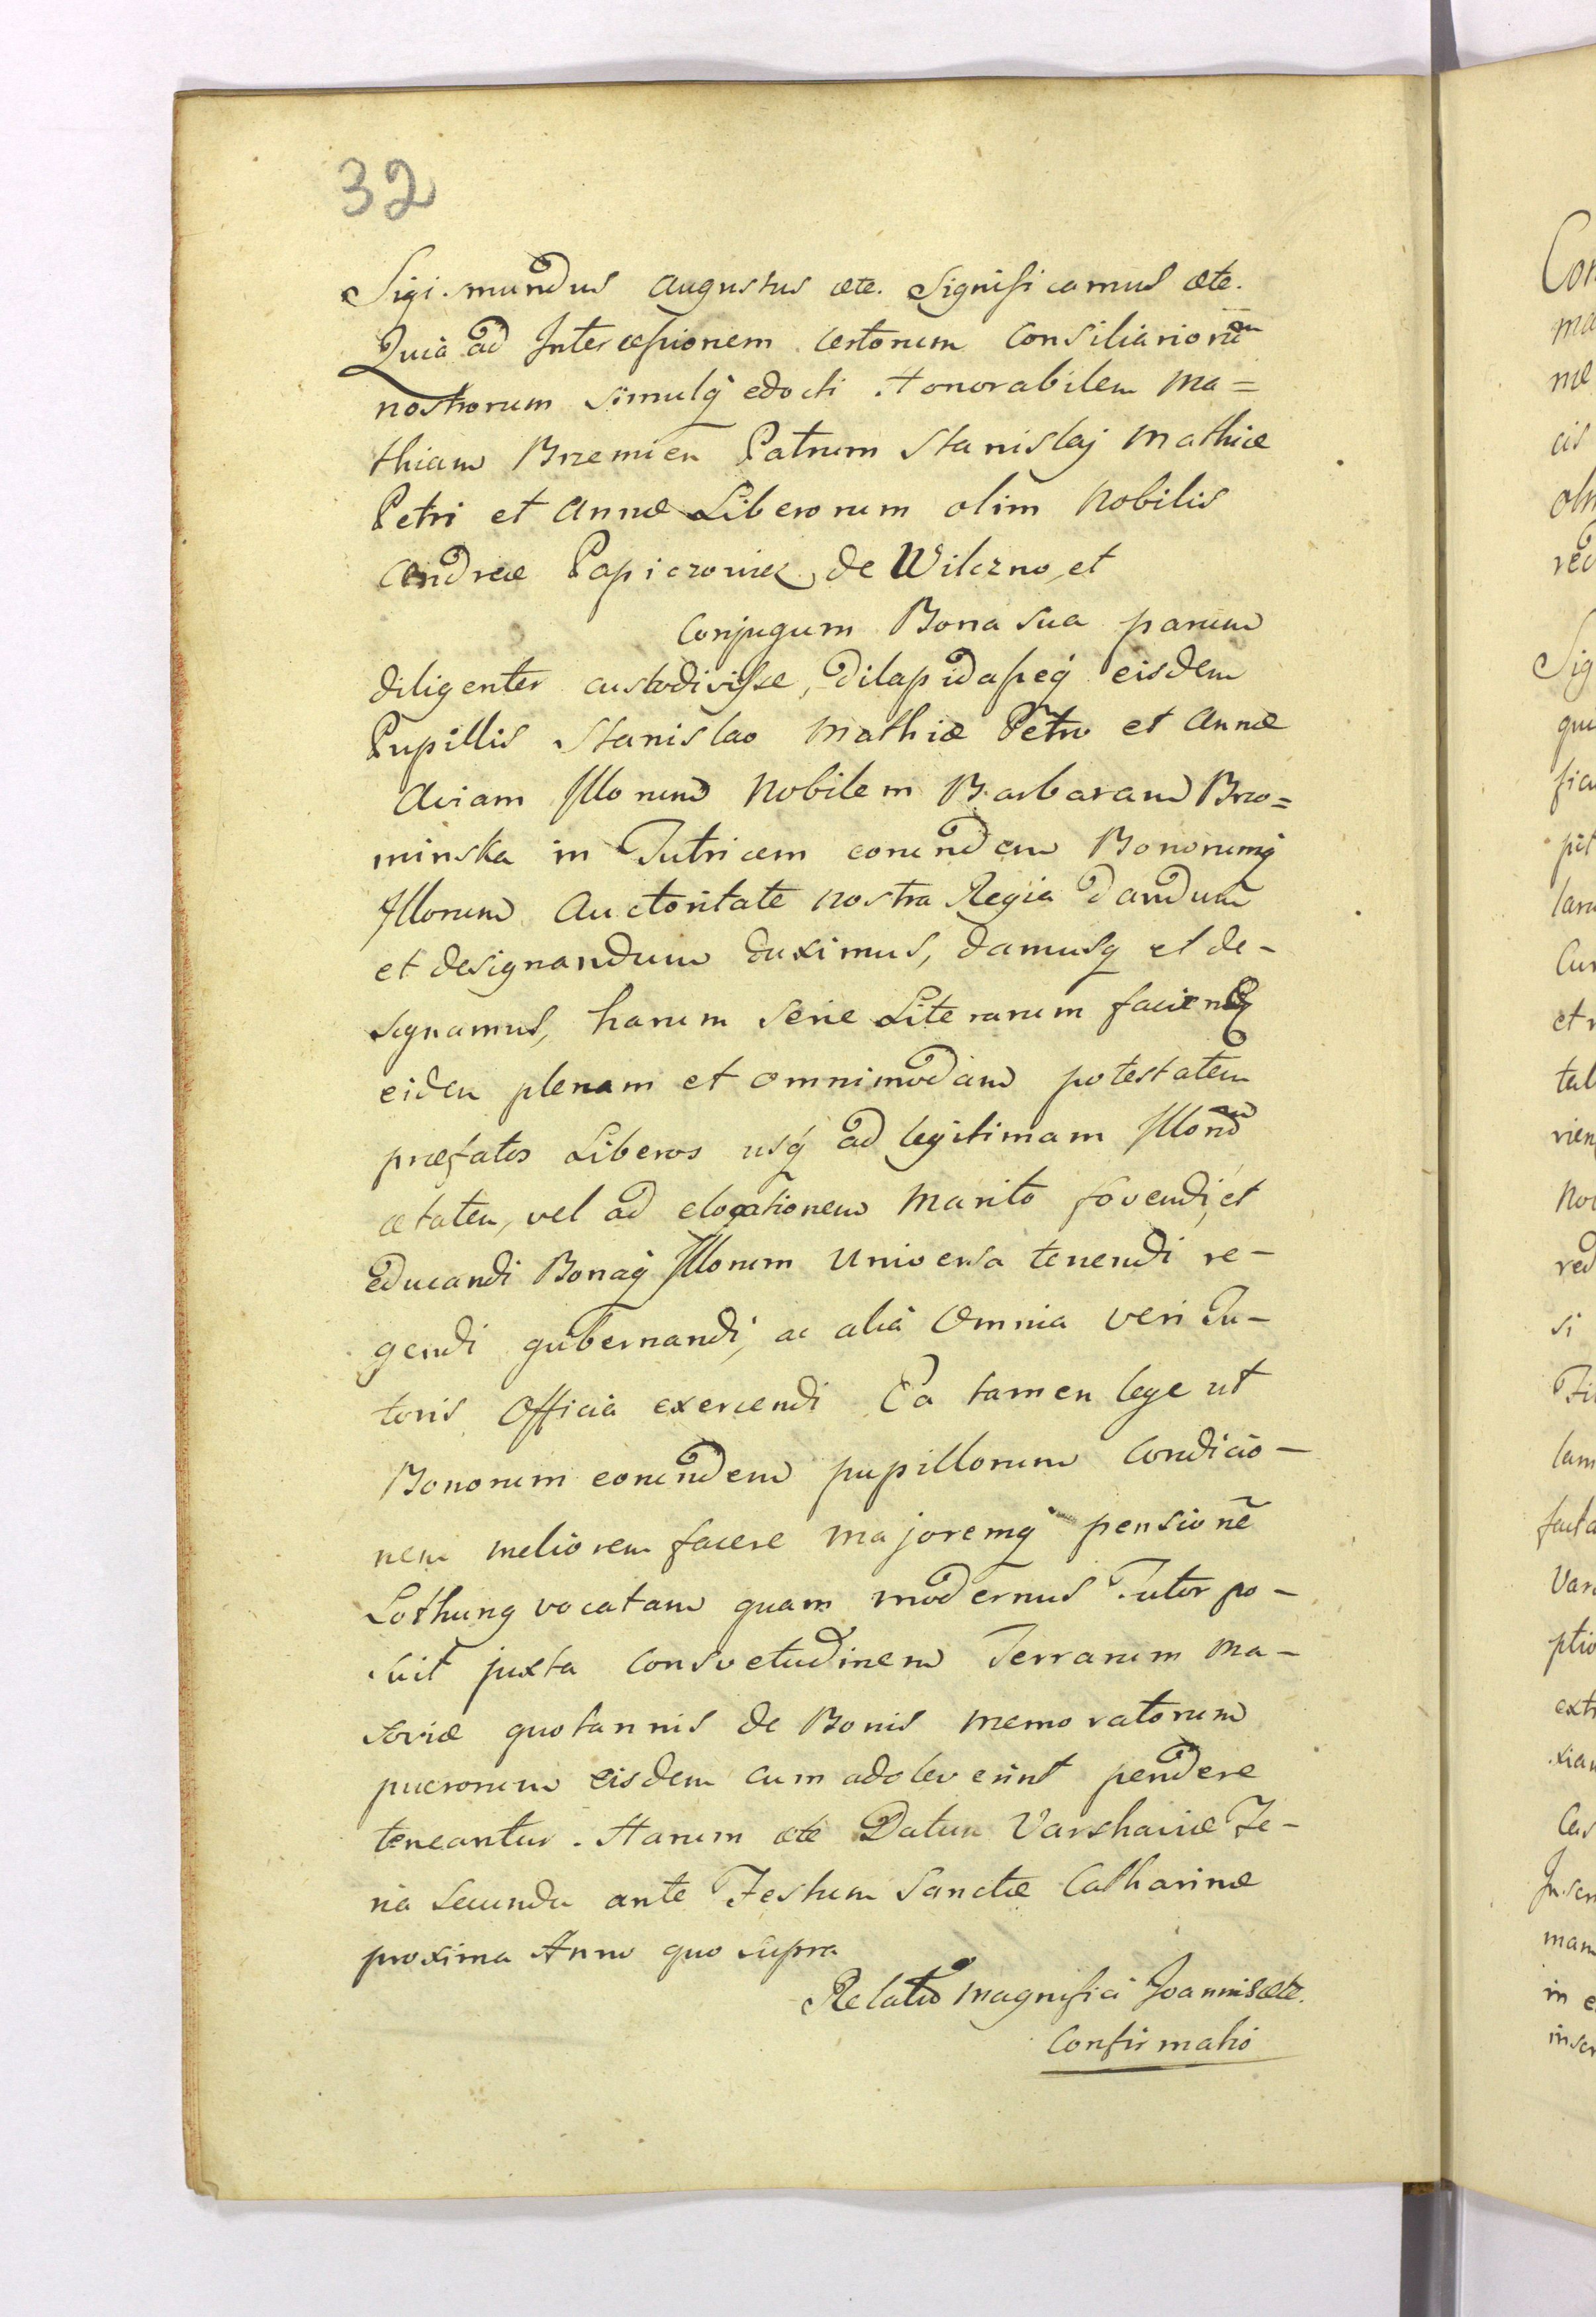 32
Sigismundus Augustus ete. Significamus ete.
Quia ad Intercessionem certorum Consiliariorum
nostrorum simulq edocti Honorabilem Ma=
thiam Brzemien Patrum Stanislaj Mathiæ
Petri et Annæ Liberorum olim Nobilis
Andreæ Papierowicz de Wilczno, et
Conjugum Bona sua parum
diligenter custodivisse, dilapidasseq eisdem
Pupillis Stanislao Mathiæ Petro et Annæ
Aviam Illorum Nobilem Barbaram Brzo=
minska in Tutricem eorundem Bonorumq
Illorum Auctoritate nostra Regia dandum
et designandum duximus, damusq et de-
signamus, harum serie Literarum facien
eidem plenam et omnimodam potestatem
præfatos Liberos usq ad legitimam Illorum
ætatem, vel ad elocationem Marito fovendi, et
educandi Bonaq Illorum Universa tenendi re-
gendi gubernandi, ac alia Omnia veri Tu-
toris Officia exercendi Ea tamen lege ut
Bonorum eorundem pupillorum Condicio-
nem meliorem facere majoremq pensionē
Lothung vocatam quam modernus Tutor po-
suit juxta Consvetudinem Terrarum Ma-
soviæ quotannis de Bonis memoratorum
puerorum eisdem cum adoleverint pendere
teneantur. Harum ete Datum Varshaviæ Fe-
ria Secunda ante Festum Sanctæ Catharinæ
proxima Anno quo supra
Relatio Magnifici Joannis ete.
Confirmatio